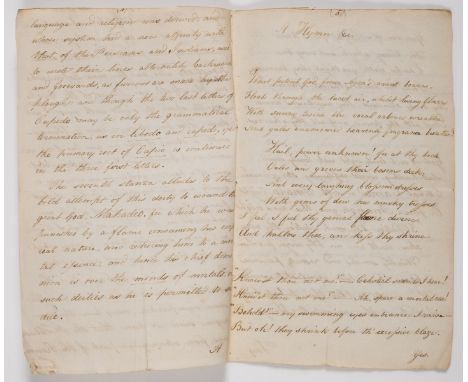 language and religion was derived, and
whose system had a near affinity with
that of the Persians, and Indians, used
to write their lines alternately backward
and forwards, as furrows are made by the
plough; and though the two last letters of
Cupido may be only the grammatical
termination, as in libido and capedo, yet
the primary root of Cupio is contained
in the three first letters.
The seventh stanza alludes to the
bold attempt of this deity to wound the
great God, Mahadeo, for which he was
punished by a flame consuming his corp
oreal nature, and reducing him to a men
tal essence; and hence his chief domi
nion is over the minds of mortals,
such deities as he is permitted to
due.
A
A Hymn &c.
What potent God from Agra's orient bowers
Floats through the lucid air, whilst living flowers
With sunny twine the vocal arbours wreathe
And gales enamour'd heavenly fragrance breathe?
Hail, power unknown! for at thy beck
Vales and groves their bosoms deck,
And every laughing blossom dresses
With gems of dew his musky tresses.
I feel, I feel thy genial flame divine,
And hallow thee, and kiss thy shrine
"Know'st thou not me?" Celestial sounds I hear!
"Know'st thou not me?" Ah, spare a mortal ear!
"Behold" my swimming eyes entranc'd I raise
But oh! they shrink before th' excessive blaze.
Yes